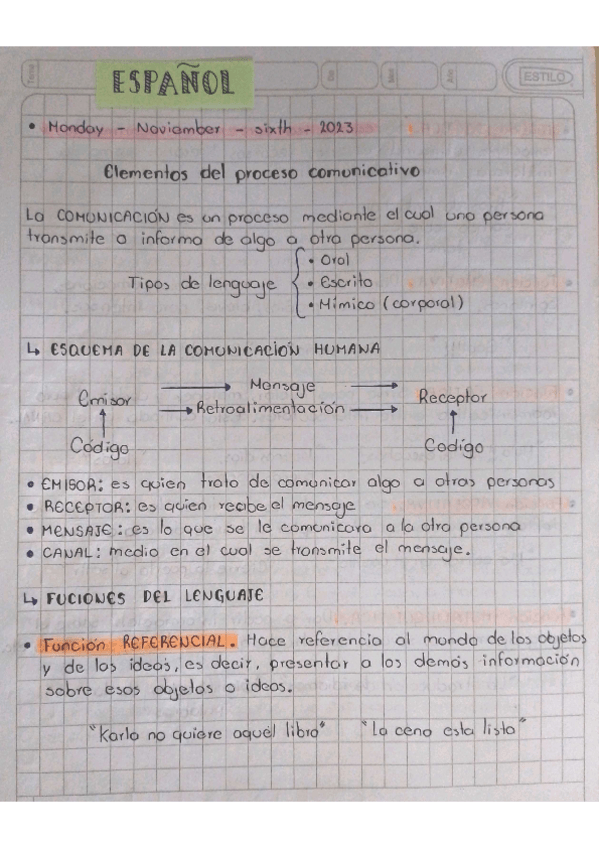 ESTILO
ESPAÑOL
• Monday - Noviember - sixth - 2023
Elementos del proceso comunicativo
La COMUNICACIÓN es un proceso mediante el cual una persona
transmite o informa de algo a otra persona.
• Oral
Tipos de lenguaje • Escrito
• Mímico (corporal)
↳ ESQUEMA DE LA COMUNICACIÓN HUMANA
Emisor → Mensaje → Receptor
→ Retroalimentación →
Código Codigo
• EMISOR: es quien trata de comunicar algo a otras personas
• RECEPTOR: es quien recibe el mensaje
• MENSAJE: es lo que se le comunicara a la otra persona
• CANAL: medio en el cual se transmite el mensaje.
↳ FUCIONES DEL LENGUAJE
• Función REFERENCIAL. Hace referencia al mundo de los objetos
y de las ideas, es decir, presentar a los demás información
sobre esos objetos o ideas.
"Karla no quiere aquél libro" "La cena esta lista"